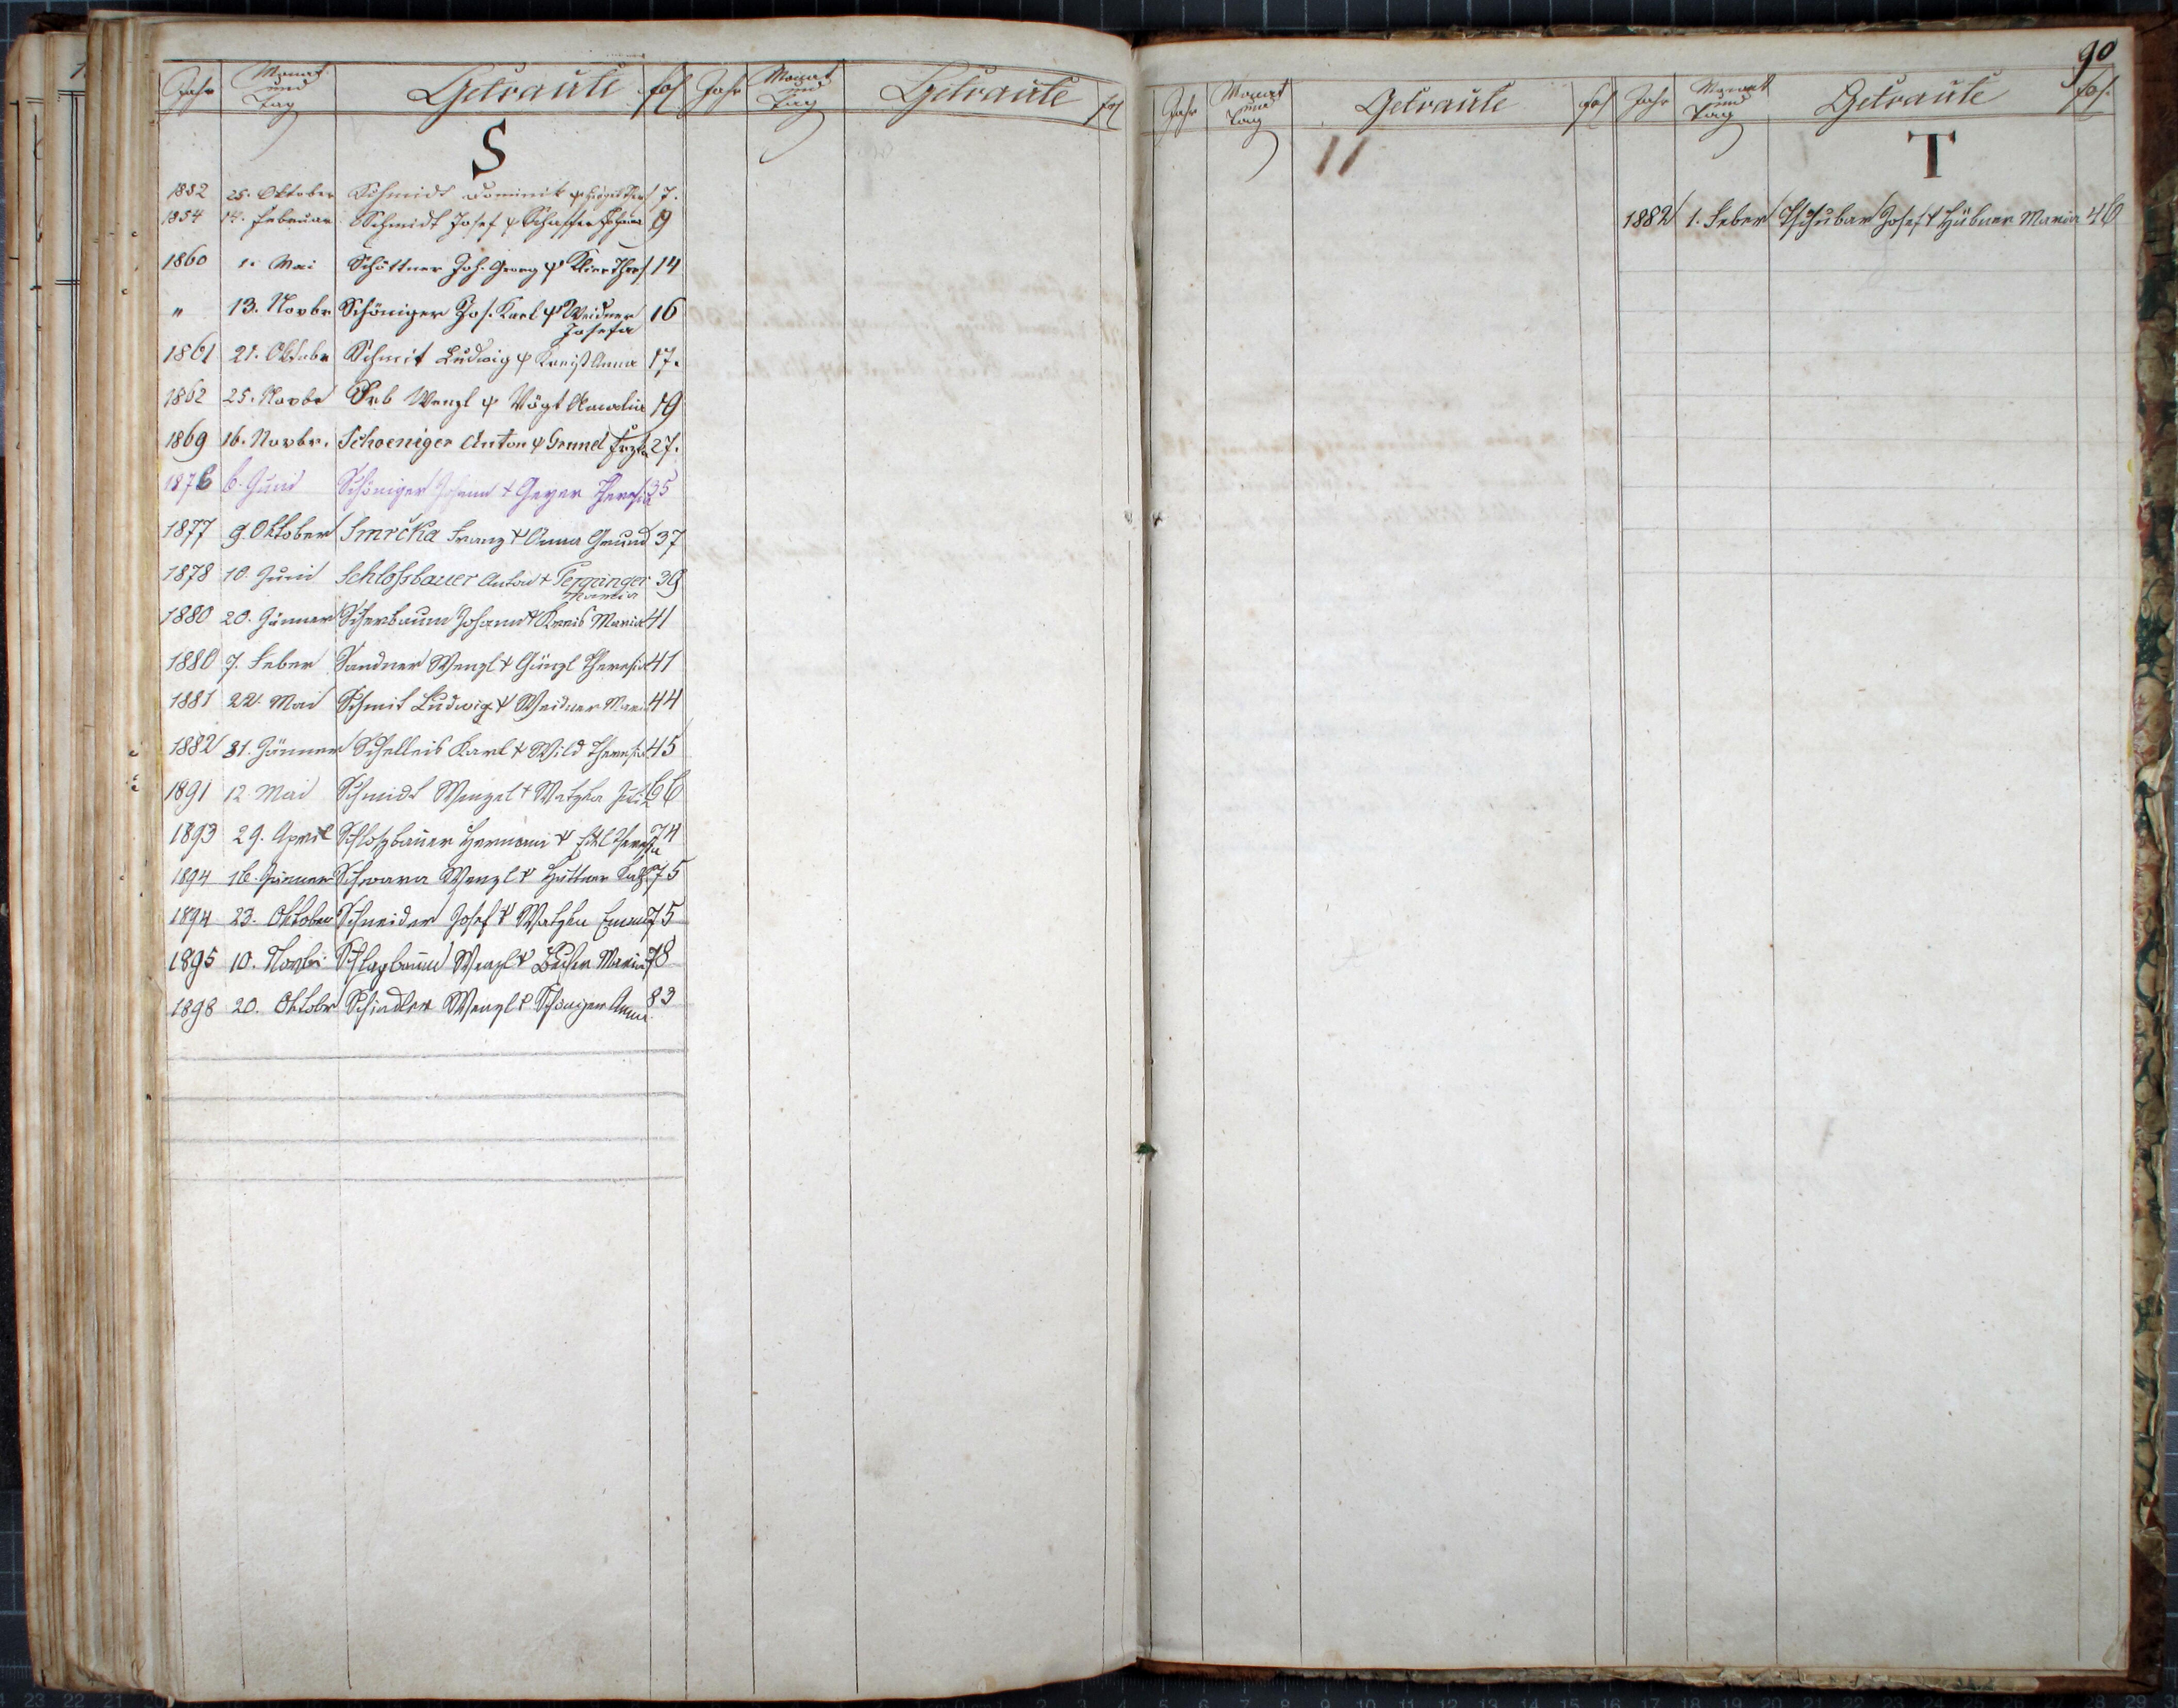 Jahr Monat und Tag Getraute fol Jahr Monat und Tag Getraute fol
S
1852 25. Oktober Schmidt Dominik & 7.
1854 14. Februar Schmidt Josef & 9
1860 1. Mai Schöttner Joh. Georg & Klier Theres 14
" 13. Novbr Schöniger Jos. Karl & Weidner 16
Josefa
1861 21. Oktobr Schmit Ludwig & Anna 17.
1862 25. Novbr Wenzl & Vögt Amalia 19
1869 16. Novbr. Schoeniger Anton & 27.
1876 6. Juni Schöniger Johann + Geyer Theresia 35
1877 9. Oktober Smrčka Franz & Anna Grund 37
1878 10. Juni Schlossbauer Anton + 39
1880 20. Jänner Scherbaum Johann & Maria 41
1880 7. Feber Sandner Wenzl & Günzl Theresia 41
1881 22. Mai Schmit Ludwig & Weidner Maria 44
1882 31. Jänner Karl & Wild Theresia 45
1891 12. Mai Schmidt Wenzel + Watzka 66
1893 29. April Schloßbauer Hermann & Theresia 74
1894 16. Jänner Wenzl & Hüttner Kath 75
1894 23. Oktober Schneider Josef & Watzka 75
1895 10. Novbr Schlagbaum Wenzl & Maria 78
1898 20. Oktobr Schindler Wenzl & Schöniger Anna 83
90
Jahr Monat und Tag Getraute fol Jahr Monat und Tag Getraute fol.
T
1882 1. Feber Tschubar Josef & Hübner Maria 46